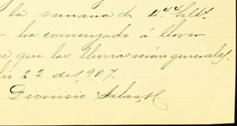 la semana de
ha comenzado á llover
que las lluvias serán generales.
22 de 1,907.
Dionisio Salas,